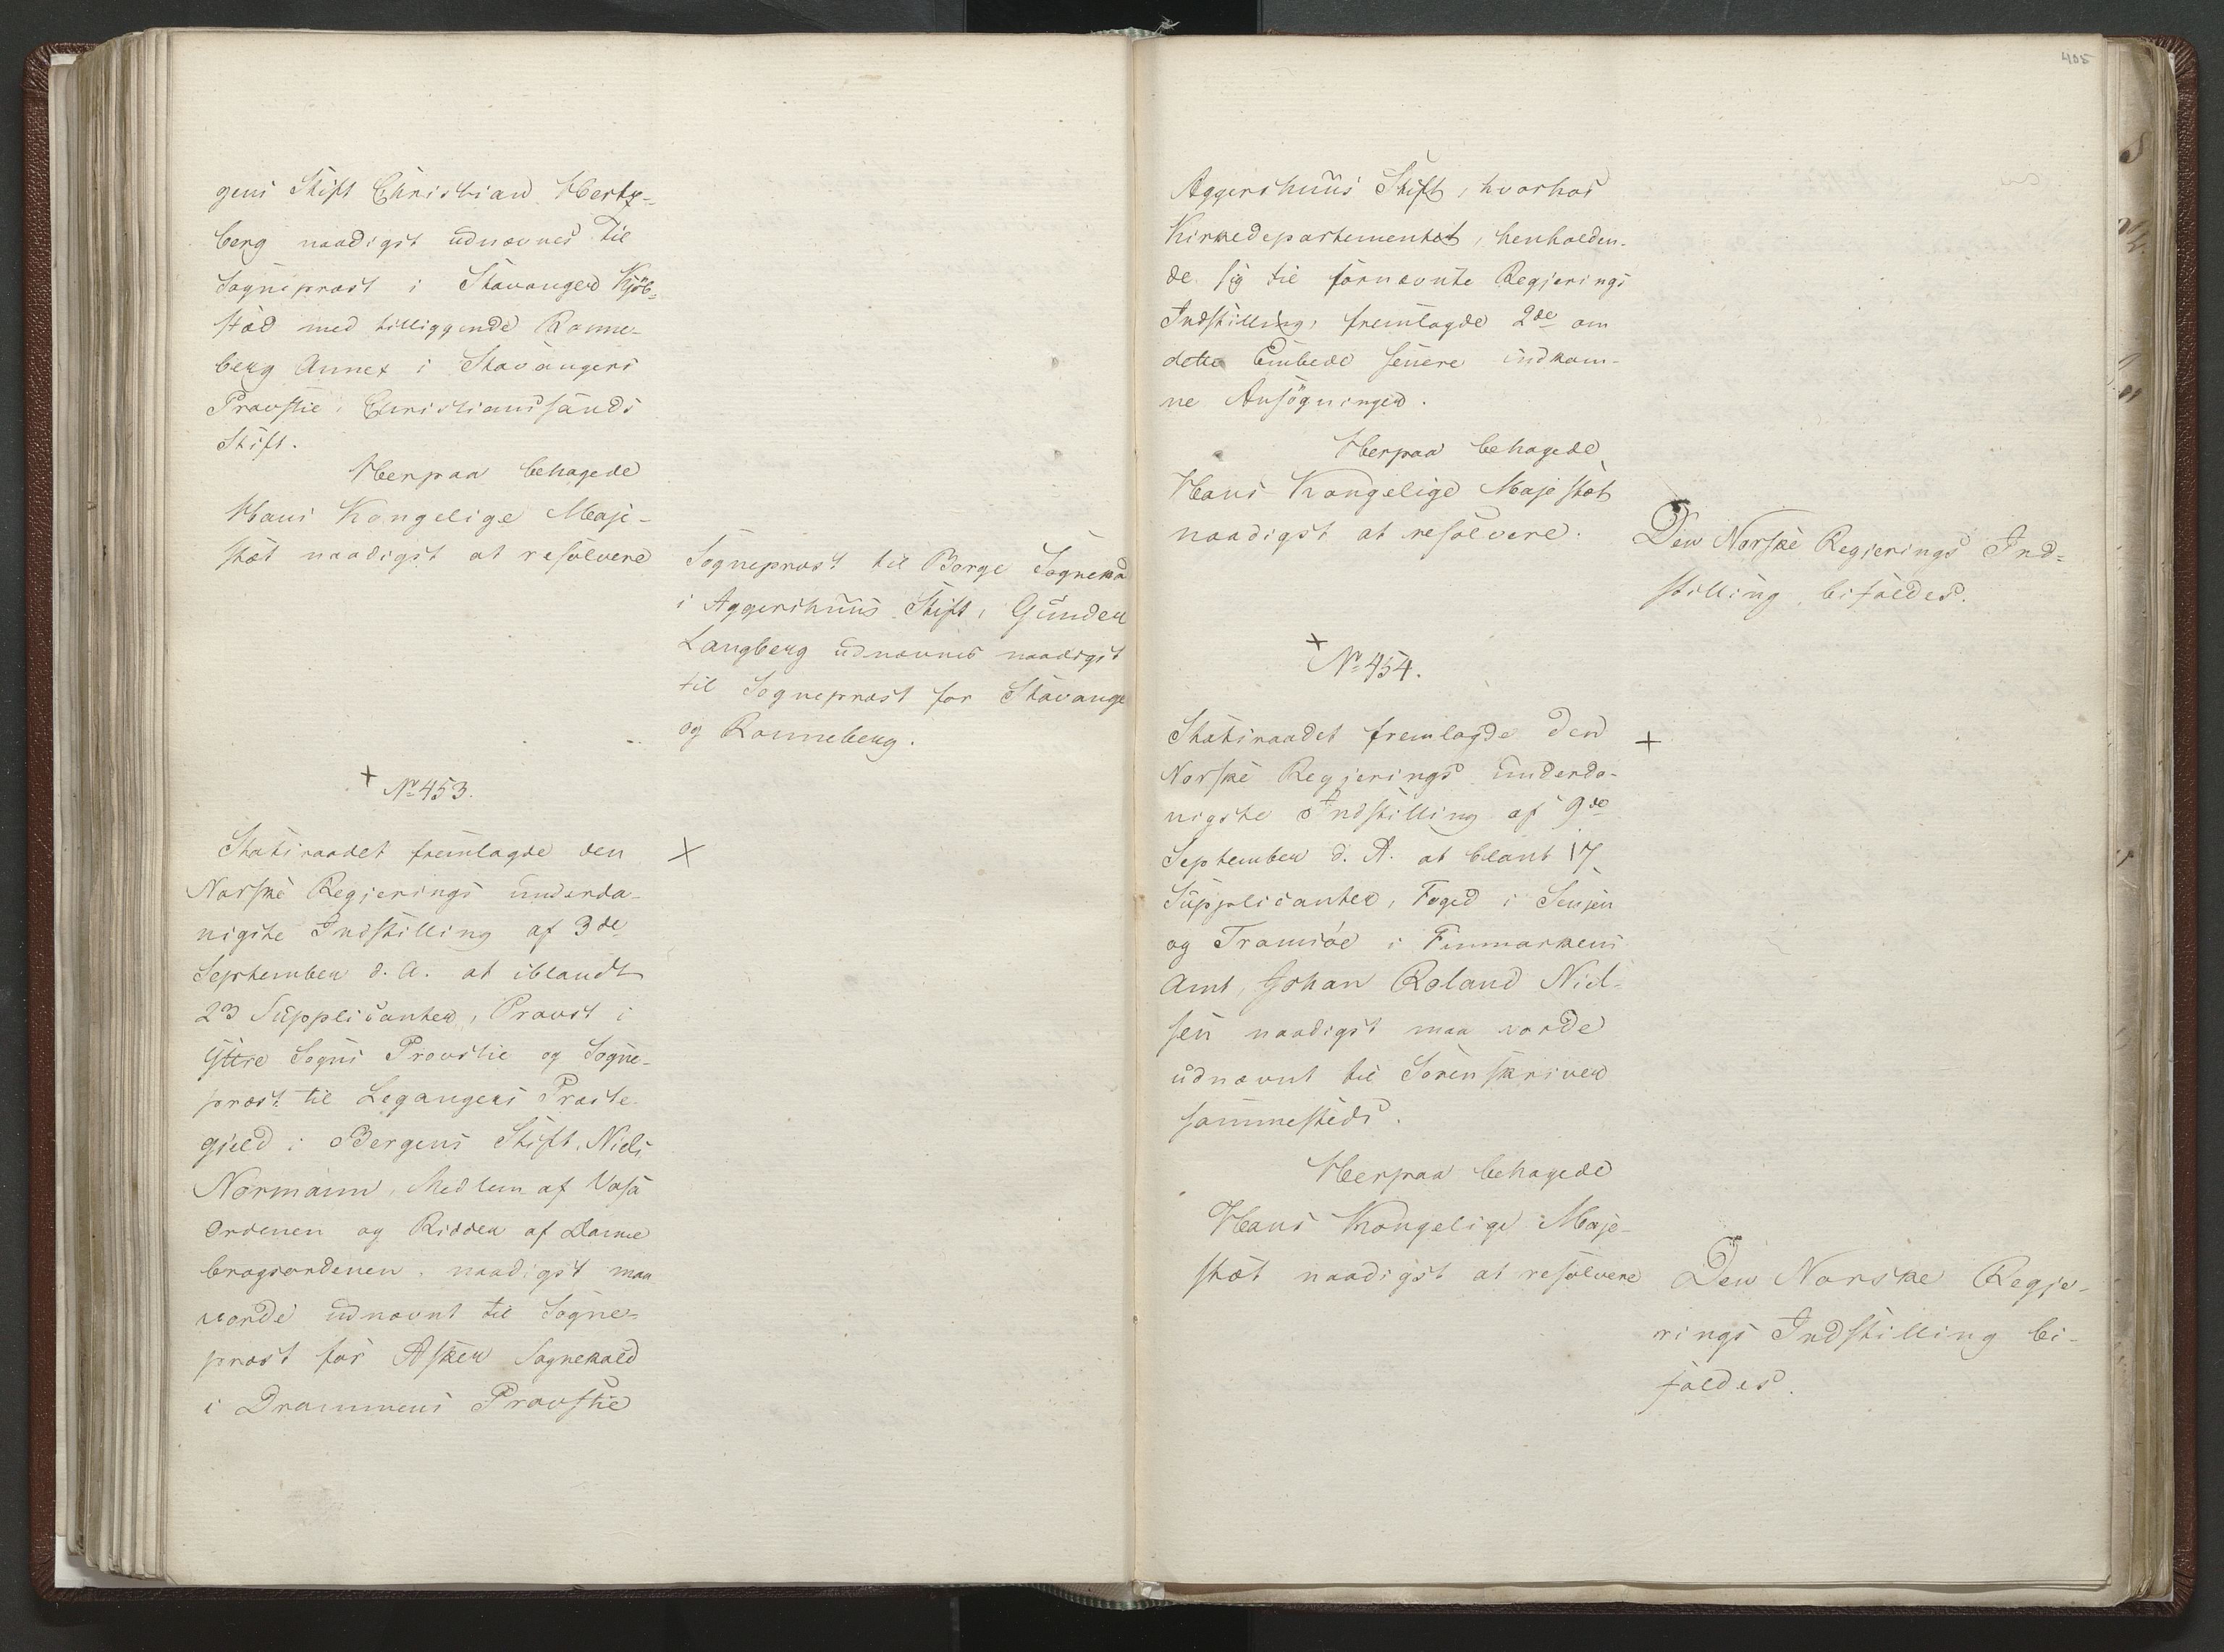 gens Stift Christian Hertz-
berg naadigst udnævnes til
Sognepræst i Stavanger Kjöb-
stæd med tilliggende Ronne-
berg Annex i Stavangers
Provstie i Christiansands
Stift.
Herpaa behagede
Hans Kongelige Maje-
stæt naadigst at resolvere
Sognepræst til Borge Sognekald
i Aggershuus Stift, Gunder
Langberg udnævnes naadigst
til Sognepræst for Stavanger
og Ronneberg.
+ No 453.
Statsraadet fremlagde den
Norske Regjerings underda-
nigste Indstilling af 3de
September d. A. at iblandt
23 Supplicanter, Provst i
Yttre Sogns Provstie og Sogne-
præst til Legangers Præste-
gjeld i Bergens Stift, Niels
Normann, Medlem af Vasa
Ordenen og Ridder af Danne
brogsordenen, naadigst maa
vorde udnævnt til Sogne-
præst for Asker Sognekald
i Drammens Provstie
+
405
Aggershuus Stift, hvorhos
Kirkedepartementet, henholden-
de sig til fornævnte Regjerings
Indstilling, fremlagde 2de om
dette Embede senere indkom-
ne Ansögninger.
Herpaa behagede
Hans Kongelige Majestæt
naadigst at resolvere.
Den Norske Regjerings Ind-
stilling bifaldes.
+
No 454.
Statsraadet fremlagde den
+
Norske Regjerings underda-
nigste Indstilling af 9de
September d. A. at blant 17
Supplicanter, Foged i Senjen
og Tromsöe i Finmarkens
Amt, Johan Roland Niel-
sen naadigst maa vorde
udnævnt til Sorenskriver
sammesteds.
Herpaa behagede
Hans Kongelige Maje-
stæt naadigst at resolvere
Den Norske Regje-
rings Indstilling bi-
faldes.